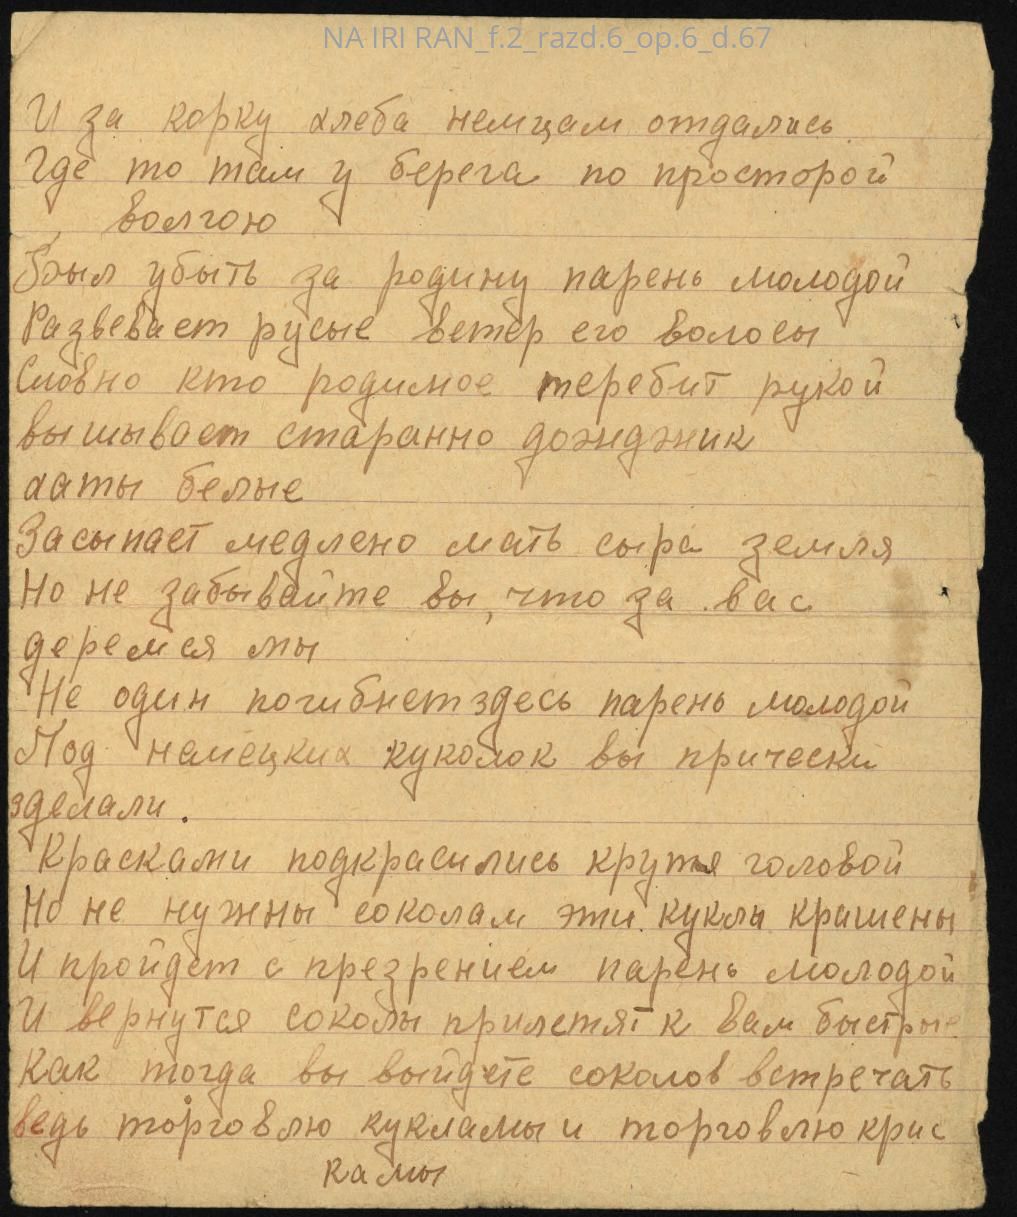 NA IRI RAN_f.2_razd.6_op.6_d.67
И за корку хлеба немцам отдались
Где то там у берега по просторой
волгою
был убыть за родину парень молодой
Развевает русые ветер его волосы
Словно кто родимое теребит рукой
вышывает старанно дожджик
хаты белые
Засыпает медлено мать сыра земля
Но не забывайте вы, что за вас
деремся мы
Не один погибнет здесь парень молодой
Под немецких куколок вы прически
зделали.
Красками подкрасились крутя головой
Но не нужны соколам эти куклы крашены
И пройдет с презрением парень молодой
И вернутся соколы прилетят к вам быстрые
Как тогда вы выйдете соколов встречать
ведь торговлю кукламы и торговлю
камы